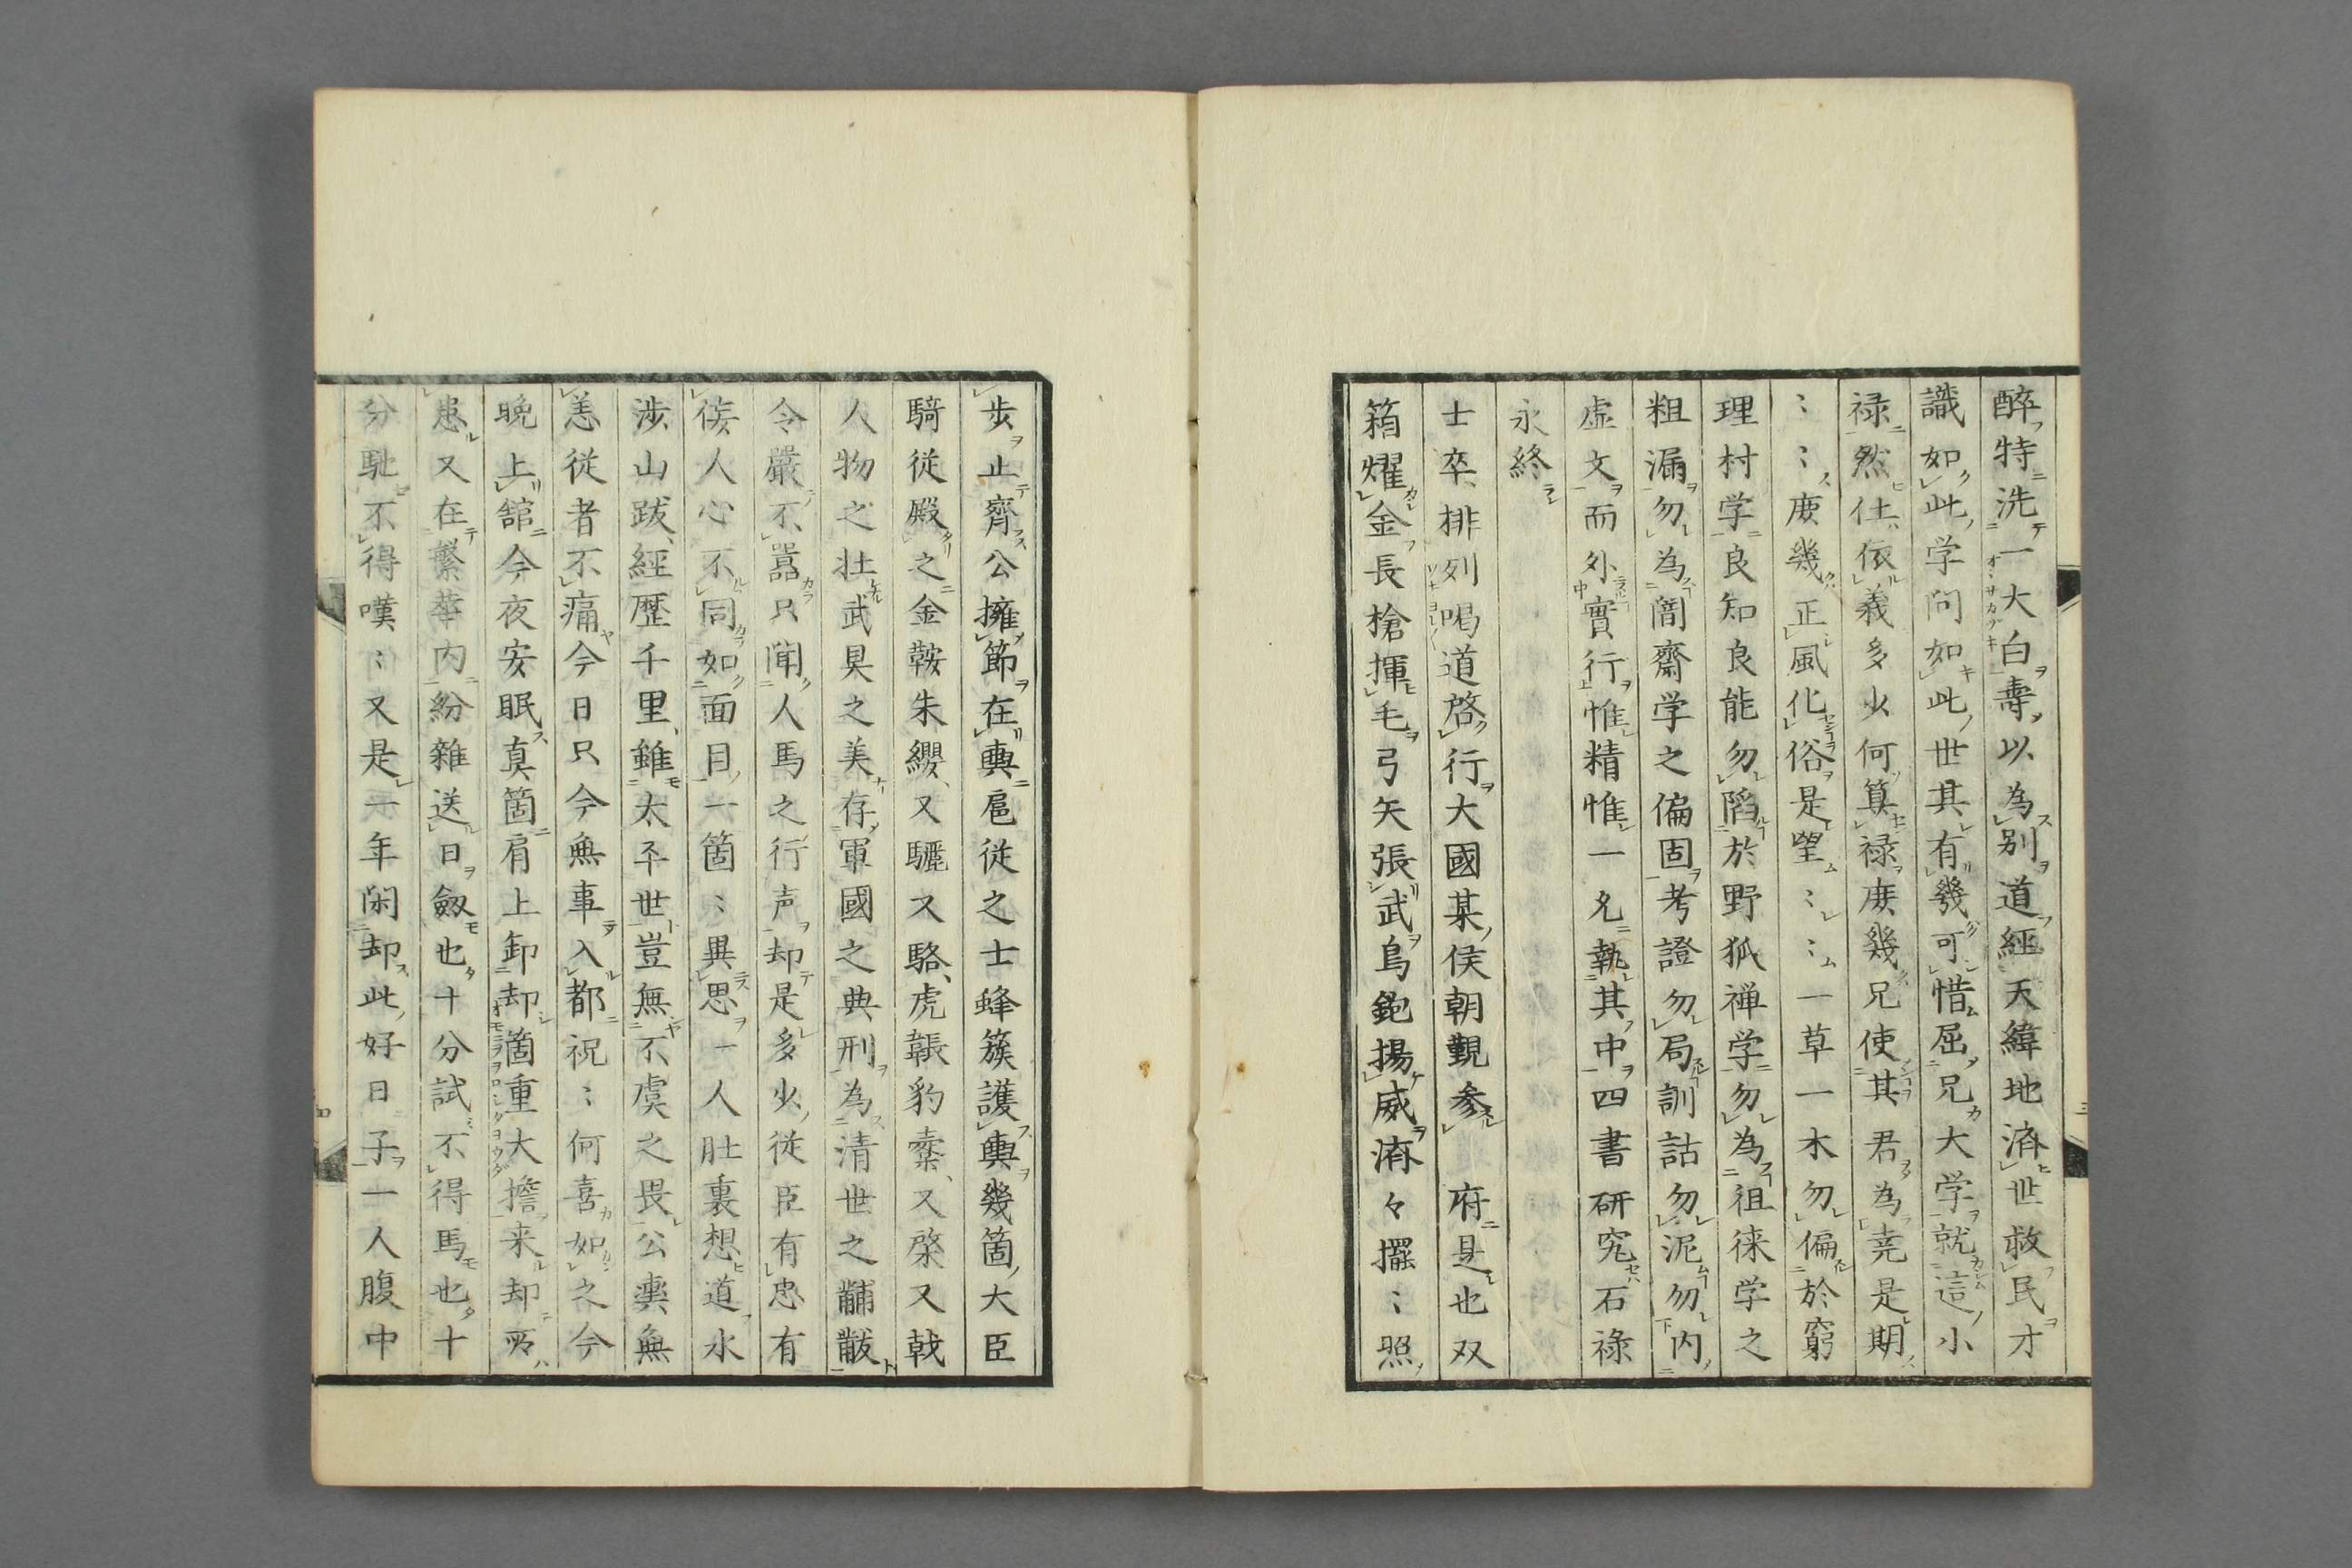 醉特洗一大白壽以為別道經天緯地済世救民才
識如此学问如此世其有幾可惜屈兄大学就這小
禄然仕依義多少何算禄庻幾兄使其君為尭是期
〻〻庻幾正風化俗是望〻〻一草一木勿偏於窮
理村学良知良能勿陷於野狐禅学勿為徂徠学之
粗漏勿為闇齋学之偏固考證勿局訓詁勿泥勿内
虚文而外實行惟精惟一允執其中四書研究石禄
永終
士卒排列喝道啓行大國某侯朝覲参府是也双
箱燿金長槍揮毛弓矢張武鳥銃揚威済々擺〻照
歩止齊公擁節在輿扈従之士蜂簇護輿幾箇大臣
騎従殿之金鞍朱纓又驪又駱虎韔豹櫜又棨又戟
人物之壮武具之美存軍國之典刑為清世之黼黻
令嚴不嚣只聞人馬之行声却是多少従臣有患有
倿人心不同如面目一箇〻異思一人肚裏想道水
渉山跋經歴千里雖太平世豈無不虞之畏公輿無
恙従者不痛今日只今無事入都祝〻何喜如之今
晩上舘今夜安眠真箇肩上卸却箇重大擔来却所
患又在繁華内紛雜送日劔也十分試不得馬也十
分馳不得嘆〻又是一年闲却此好日子一人腹中